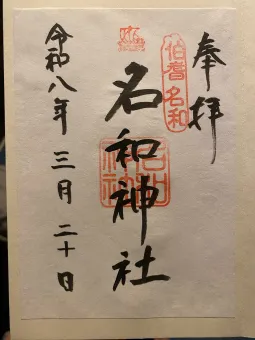 奉拝
伯耆名和
名和神社
令和八年三月二十日